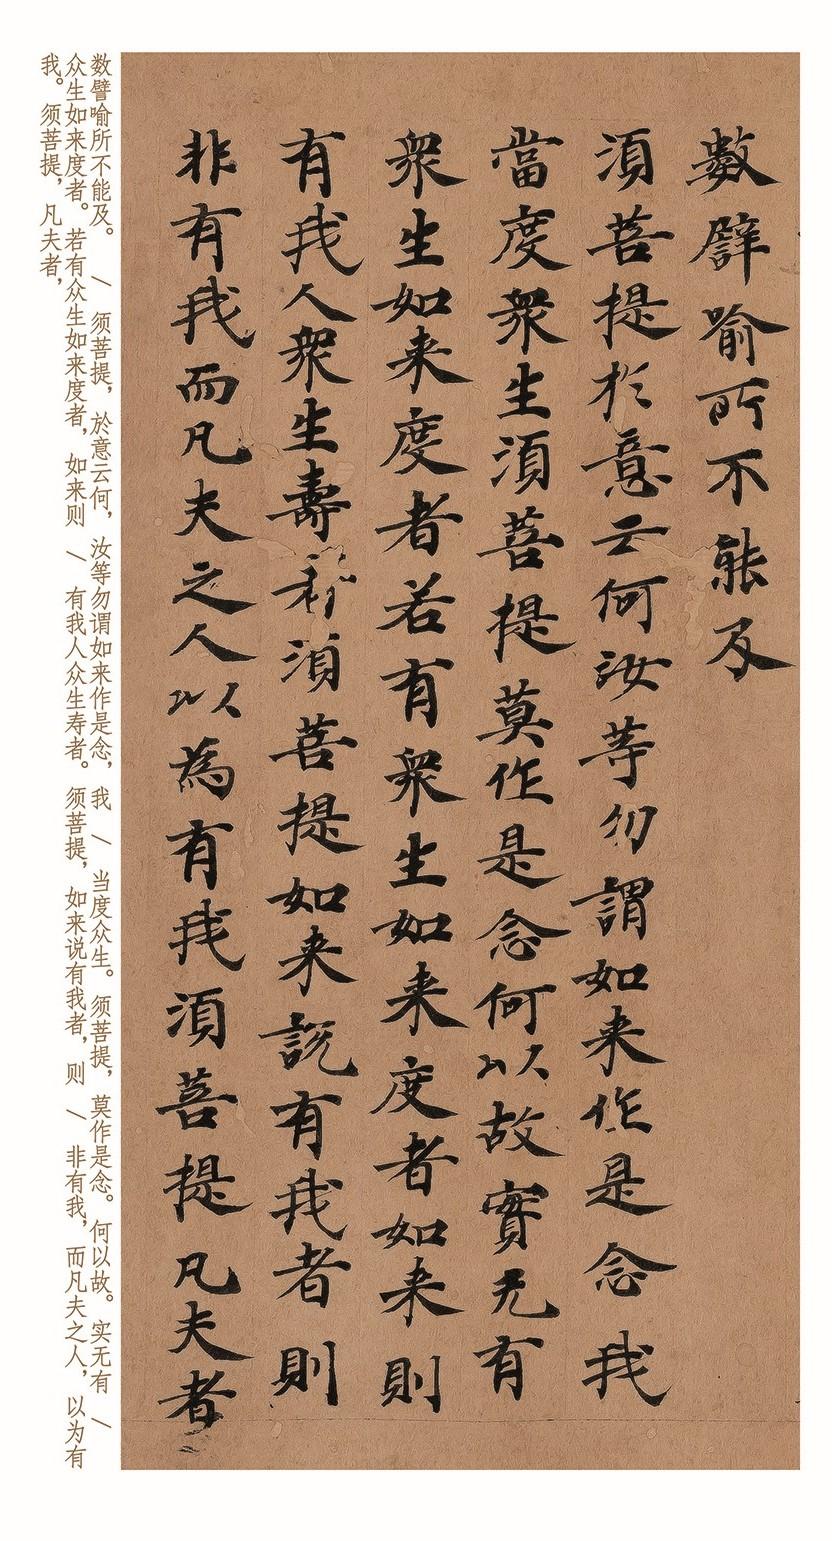 數譬喻所不能及
須菩提於意云何汝等勿謂如来作是念我
當度衆生須菩提莫作是念何以故實无有
衆生如来度者若有衆生如来度者如来則
有我人衆生壽須菩提如来説有我者則
非有我而凡夫之人以為有我須菩提凡夫者
数譬喻所不能及。\须菩提，於意云何，汝等勿谓如来作是念，我\当度众生。须菩提，莫作是念。何以故。实无有\
众生如来度者。若有众生如来度者，如来则\有我人众生寿者。须菩提，如来说有我者，则\非有我，而凡夫之人，以为有
我。须菩提，凡夫者，